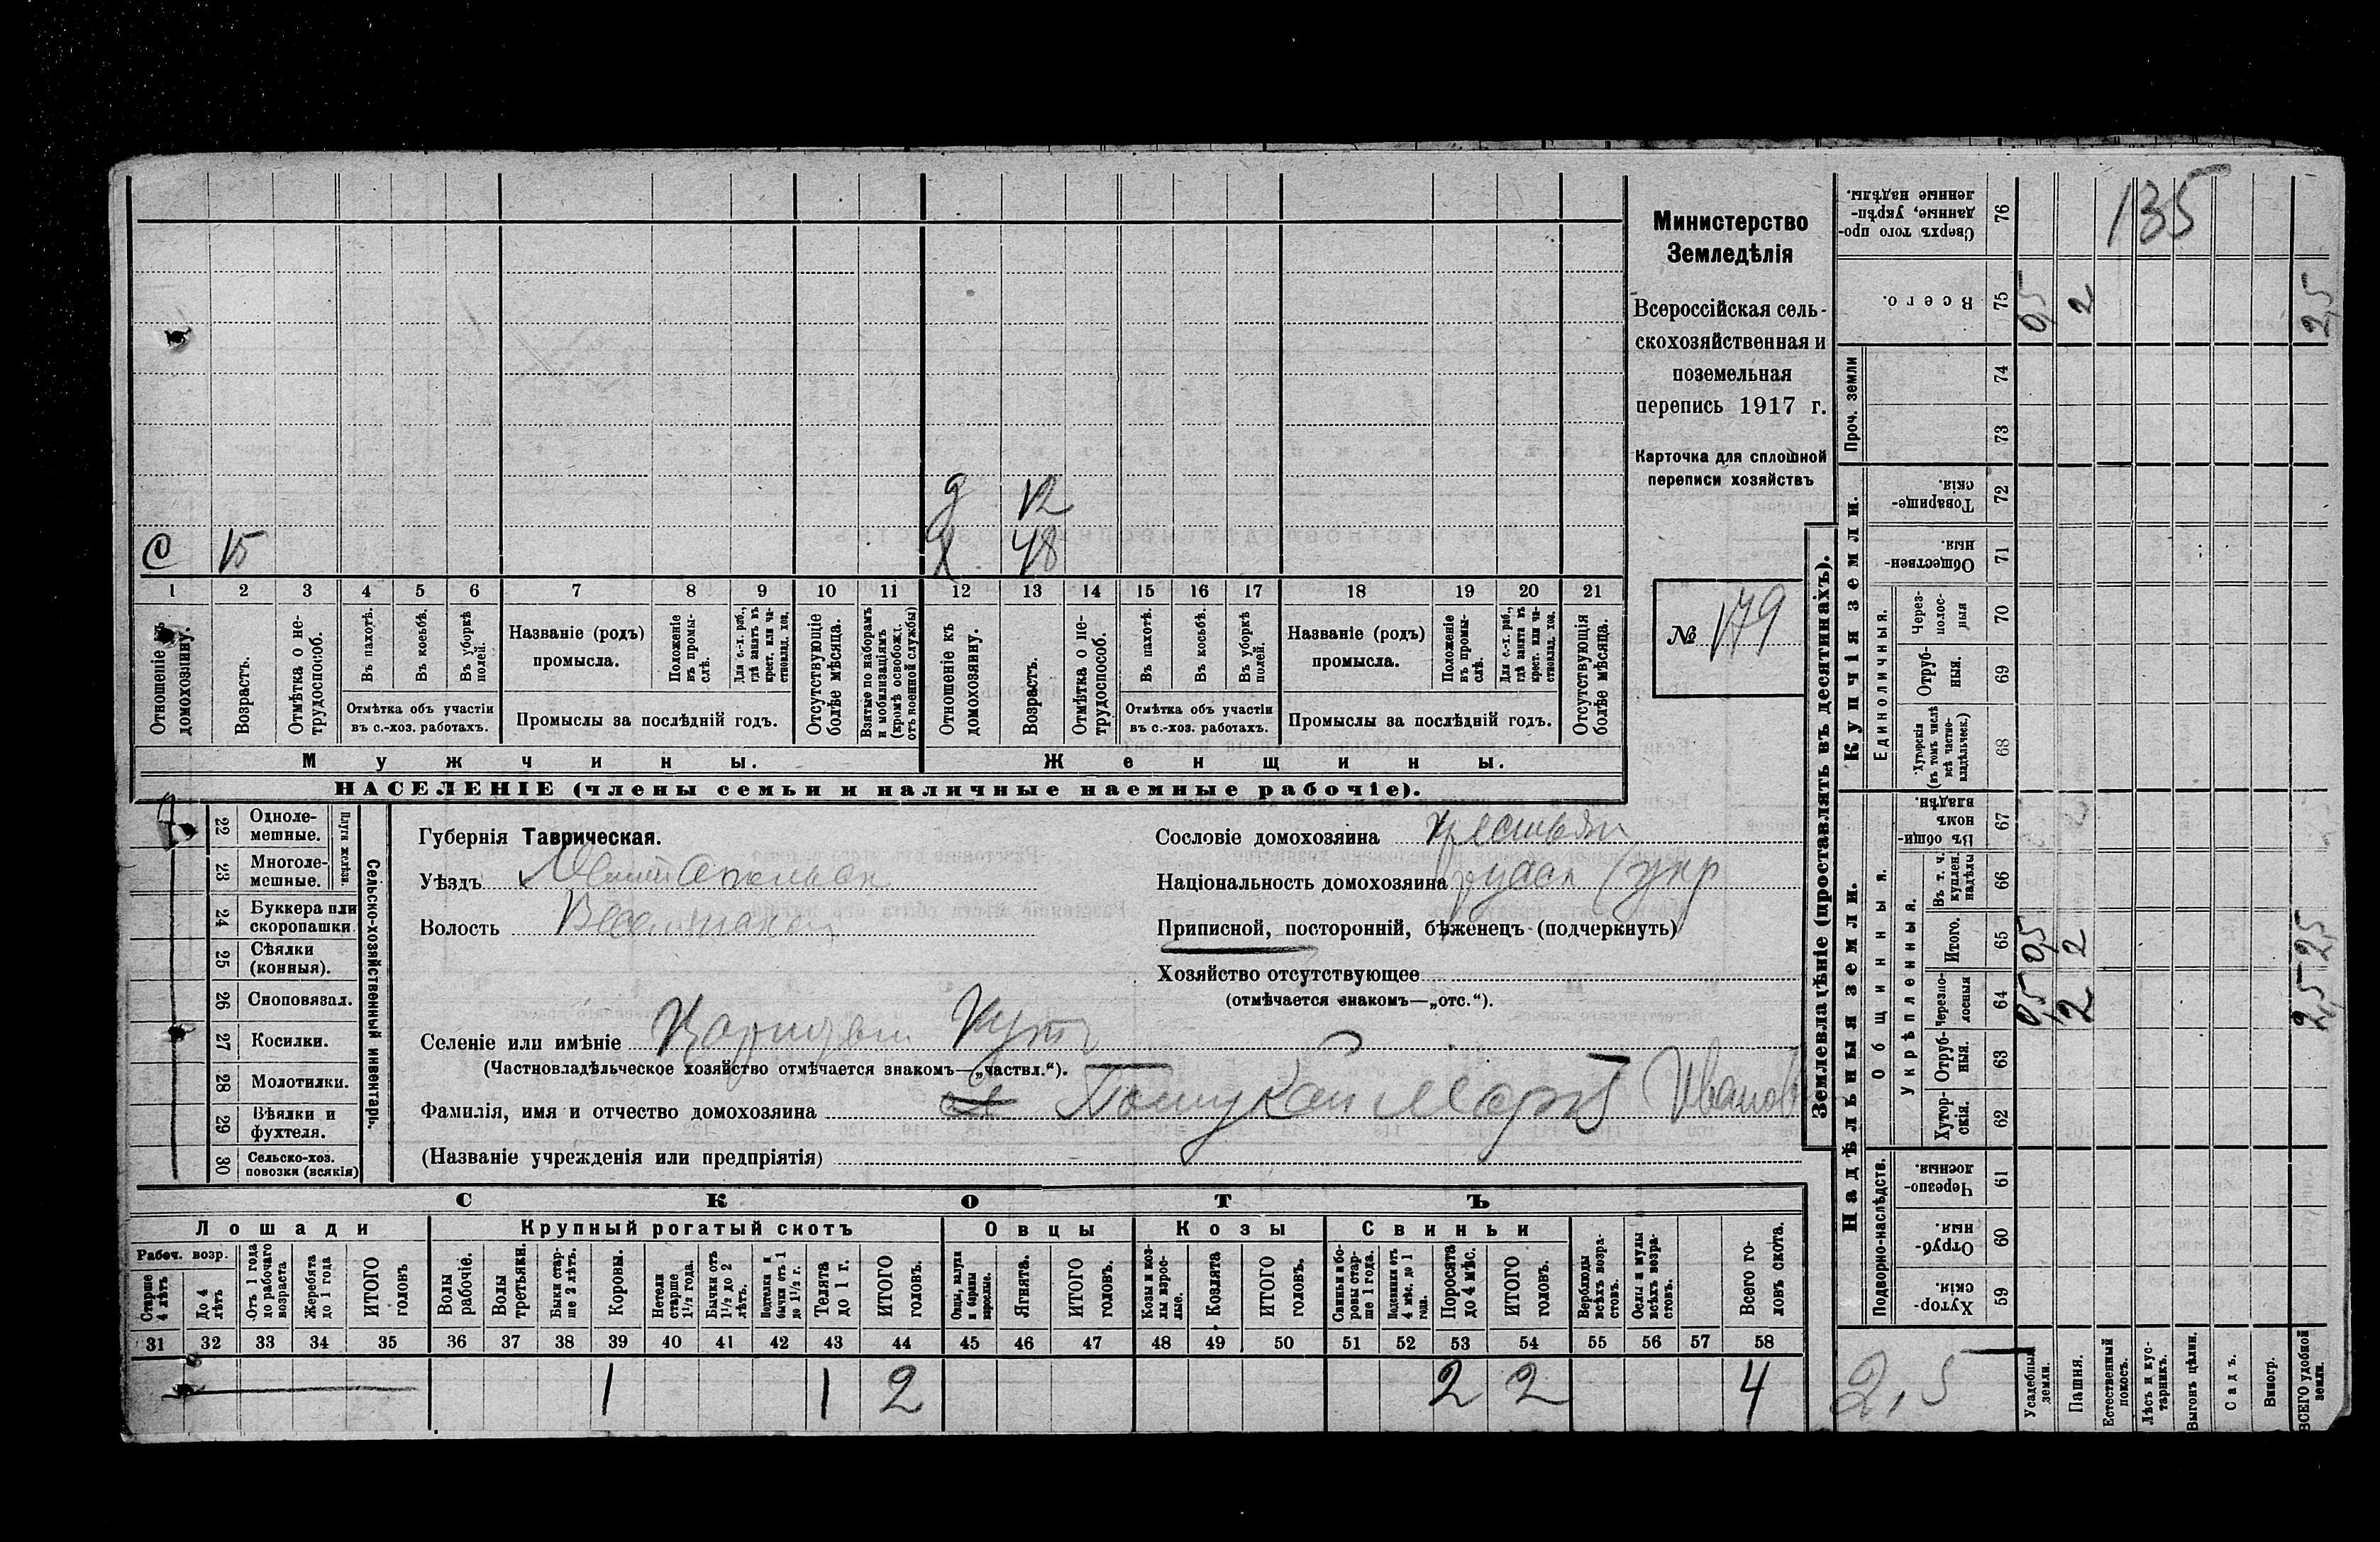 Министерство
Земледѣлія
Всероссійская сель-
скохозяйственная и
поземельная
перепись 1917 г.
Карточка для сплошной
переписи хозяйствъ
№ 179
д 12
С 15
Х 48
1 2 3 4 5 6 7 8 9 10 11 12 13 14 15 16 17 18 19 20 21
Отношеніе къ домохозяину.
Возрастъ.
Отмѣтка о не-трудоспособ.
Въ пахотѣ.
Въ косьбѣ.
Въ уборкѣ полей.
Отмѣтка объ участіи
въ с.-хоз. работахъ.
Названіе (родъ)
промысла.
Положеніе въ промы-слѣ.
Для с.-х. раб., гдѣ занятъ въ крест. или ча-стновлад. хоз.
Промыслы за послѣдній годъ.
Отсутствующіе болѣе мѣсяца.
Взятые по наборамъ и мобилизаціямъ (кромѣ освобожд. отъ военной службы)
Отношеніе къ домохозяину.
Возрастъ.
Отмѣтка о не-трудоспособ.
Въ пахотѣ.
Въ косьбѣ.
Въ уборкѣ полей.
Отмѣтка объ участіи
въ с.-хоз. работахъ.
Названіе (родъ)
промысла.
Положеніе въ промы-слѣ.
Для с.-х. раб., гдѣ занята въ крест. или ча-стновлад. хоз.
Промыслы за послѣдній годъ.
Отсутствующія болѣе мѣсяца.
Мужчины. Женщины.
НАСЕЛЕНІЕ (члены семьи и наличные наемные рабочіе).
22 Одноле-мешные.
23 Многоле-мешные.
Плуги желѣзн.
24 Буккера или скоропашки
25 Сѣялки (конныя).
26 Сноповязал.
27 Косилки.
28 Молотилки.
29 Вѣялки и фухтеля.
30 Сельско-хоз. повозки (всякія)
Сельско-хозяйственный инвентарь.
Губернія Таврическая.
Уѣздъ
Волость
Селеніе или имѣніе Царицын Кутъ
(Частновладѣльческое хозяйство отмѣчается знакомъ—„частвл.“).
Фамилія, имя и отчество домохозяина Марія Иванов
(Названіе учрежденія или предпріятія)
Сословіе домохозяина крестьян
Національность домохозяина русск (укр
Приписной, посторонній, бѣженецъ (подчеркнуть)
Хозяйство отсутствующее
(отмѣчается знакомъ—„отс.“).
СКОТЪ
Лошади Крупный рогатый скотъ Овцы Козы Свиньи
Рабоч. возр.
Старше 4 лѣтъ
До 4 лѣтъ
Отъ 1 года до рабочаго возраста
Жеребята до 1 года
ИТОГО головъ
Волы рабочіе.
Волы третьяки.
Быки стар-ше 2 лѣтъ.
Коровы.
Нетели старше 1½ года.
Бычки отъ 1½ до 2 лѣтъ.
Подтелки и бычки отъ 1 до 1½ г.
Телята до 1 г.
ИТОГО головъ.
Овцы, валухи и бараны взрослые.
Ягнята.
ИТОГО головъ.
Козы и коз-лы взрос-лые.
Козлята
ИТОГО головъ.
Свиньи и бо-ровы стар-ше 1 года.
Подсвинки отъ 4 мѣс. до 1 года.
Поросята до 4 мѣс.
ИТОГО головъ.
Верблюды всѣхъ возра-стовъ.
Ослы и мулы всѣхъ возра-стовъ.
Всего го-ловъ скота.
31 32 33 34 35 36 37 38 39 40 41 42 43 44 45 46 47 48 49 50 51 52 53 54 55 56 57 58
1 1 2 2 2 4
Землевладѣніе (проставлять въ десятинахъ).
Надѣльныя земли. Купчія земли. Проч. земли
Подворно-наслѣдств.
Общинныя.
Укрѣпленныя.
Единоличныя.
Хутор-скія. 59
Отруб-ныя. 60
Черезпо-лосныя. 61
Хутор-скія. 62
Отруб-ныя. 63
Черезпо-лосныя 64 0,5 2 2,5
Итого. 65 0,5 2 2,5
Въ т. ч. куплен. надѣлы 66
Въ общи-номъ владѣн. 67
Хуторскія (въ томъ числѣ всѣ частно-владѣльческ.) 68
Отруб-ныя. 69
Через-полос-ныя 70
Обществен-ныя. 71
Товарище-скія. 72
73
74
Всего. 75 0,5 2 2,5
Сверхъ того про-данные, укрѣп-ленные надѣлы. 76
135
2,5
Усадебныя земли.
Пашня.
Естественный покосъ.
Лѣсъ и кус-тарникъ.
Выгонъ цѣлин.
Садъ.
Виногр.
ВСЕГО удобной земли.